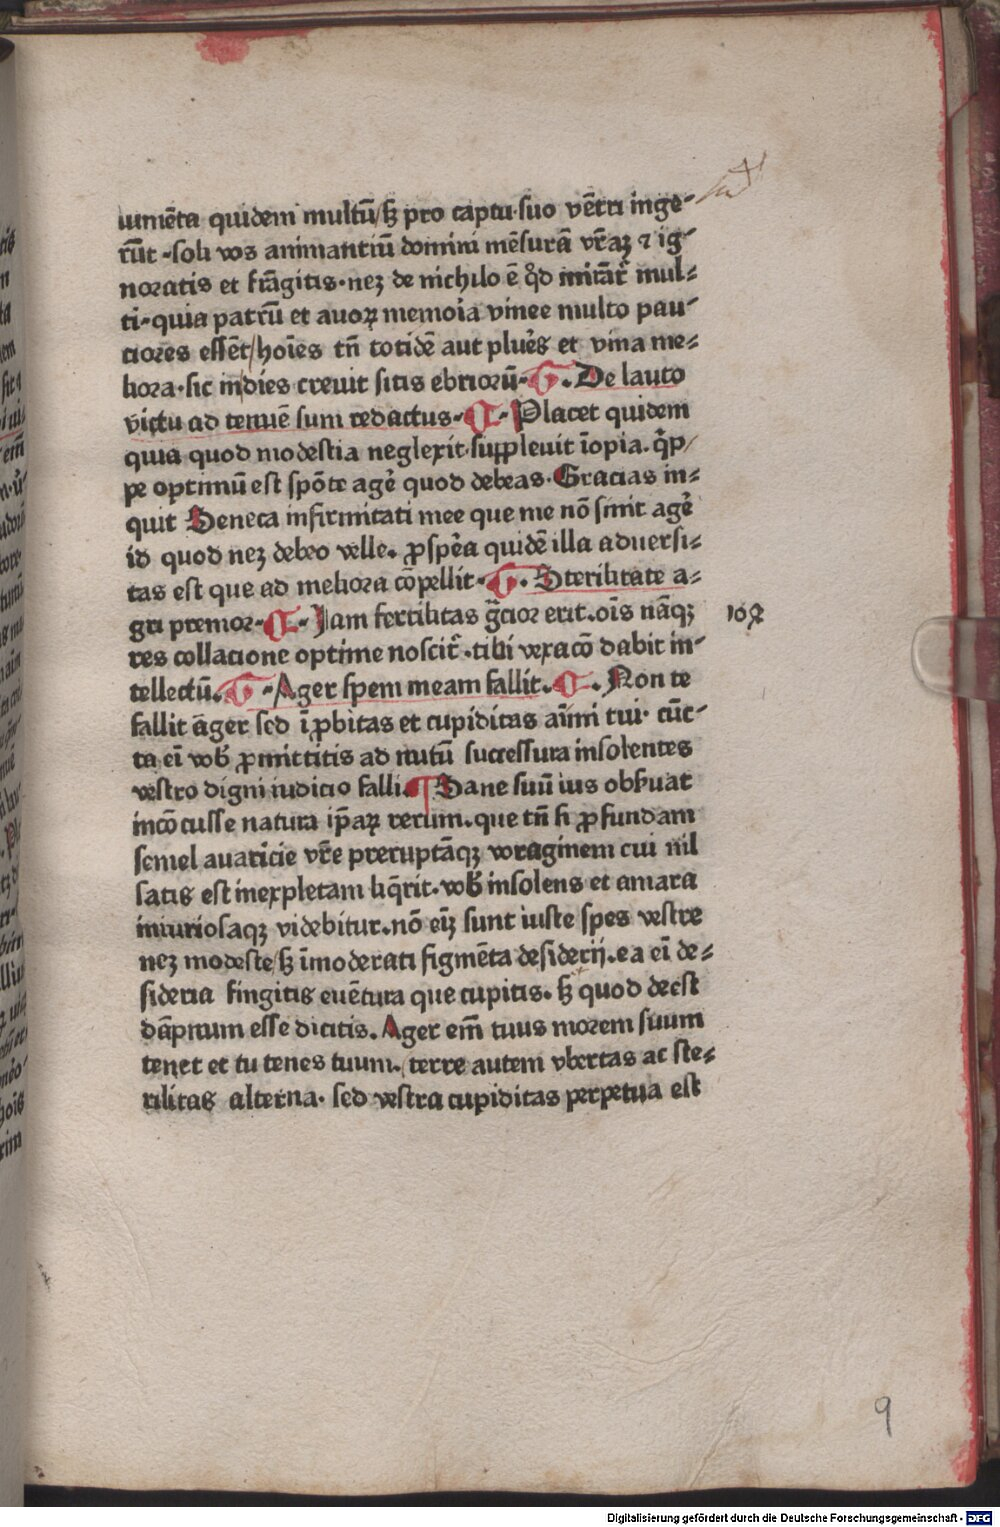 iumēta quidem multū/ꝫ pro captu·suo vētri inge⸗
rūt ·soli vos animantiū domini mēsurā vr̄aꝫ ⁊ ig⸗
noratis et frāgitis·neꝫ de nichilo ē qͦd mirāt᷑ mul⸗
ti·quia patrū et auoꝝ memoīa vinee multo pau⸗
ciores essēt/hoīes tn̄ totidē aut plur̄es et vina me⸗
liora·sic indies creuit sitis ebrioꝝū· G · De lauto
victu ad tenuē sum redactus· C · Placet quidem
quia quod modestia neglexit·suppleuit īopia. qͥp⸗
pe optimū est spōte agēr quod debeas·Gracias in⸗
quit Seneca infirmitati mee que me nō sinit agēr
id quod neꝫ debeo velle. ꝓspēra quidē illa aduersi⸗
tas est que ad meliora cōpellit· G · Sterilitate a⸗
gri premor· C · Iam fertilitas gͣcior erit.oīs nāqꝫ
res collacione optime noscit᷑·tibi vexacō dabit in⸗
tellectū. G · Ager spem meam fallit. C . Non te
fallit āger sed īꝓbitas et cupiditas aīmi tui· cūc⸗
ta eī vob̄ ꝓmittitis ad nutū successura insolentes
vestro digni iudicio falli.¶Sane suū ius obẜuat
incōcusse natura ip̄aꝝ rerum.que tn̄ si ꝓfundam
semel auaricie vr̄e preruptāqꝫ voraginem cui nil
satis est inexpletam liq̄rit·vob̄ insolens et amara
iniuriosaqꝫ videbitur.nō eīꝫ sunt iuste spes vestre
neꝫ modeste/ꝫ īmoderati figmēta desiderij.ea eī de⸗
sideria fingitis euētura que cupitis. ꝫ quod deest
dāpnum esse dicitis. Ager em̄ tuus morem suum
tenet et tu tenes tuum. terre autem vbertas ac ste⸗
rilitas alterna· sed vestra cupiditas perpetua est
9
Digitalisierung gefördert durch die Deutsche Forschungsgemeinschaft - DFG